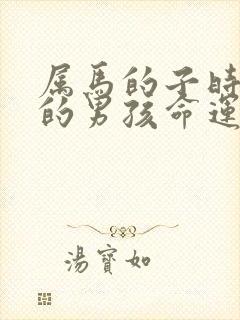 属馬的子時
的男孩命運
湯寶如